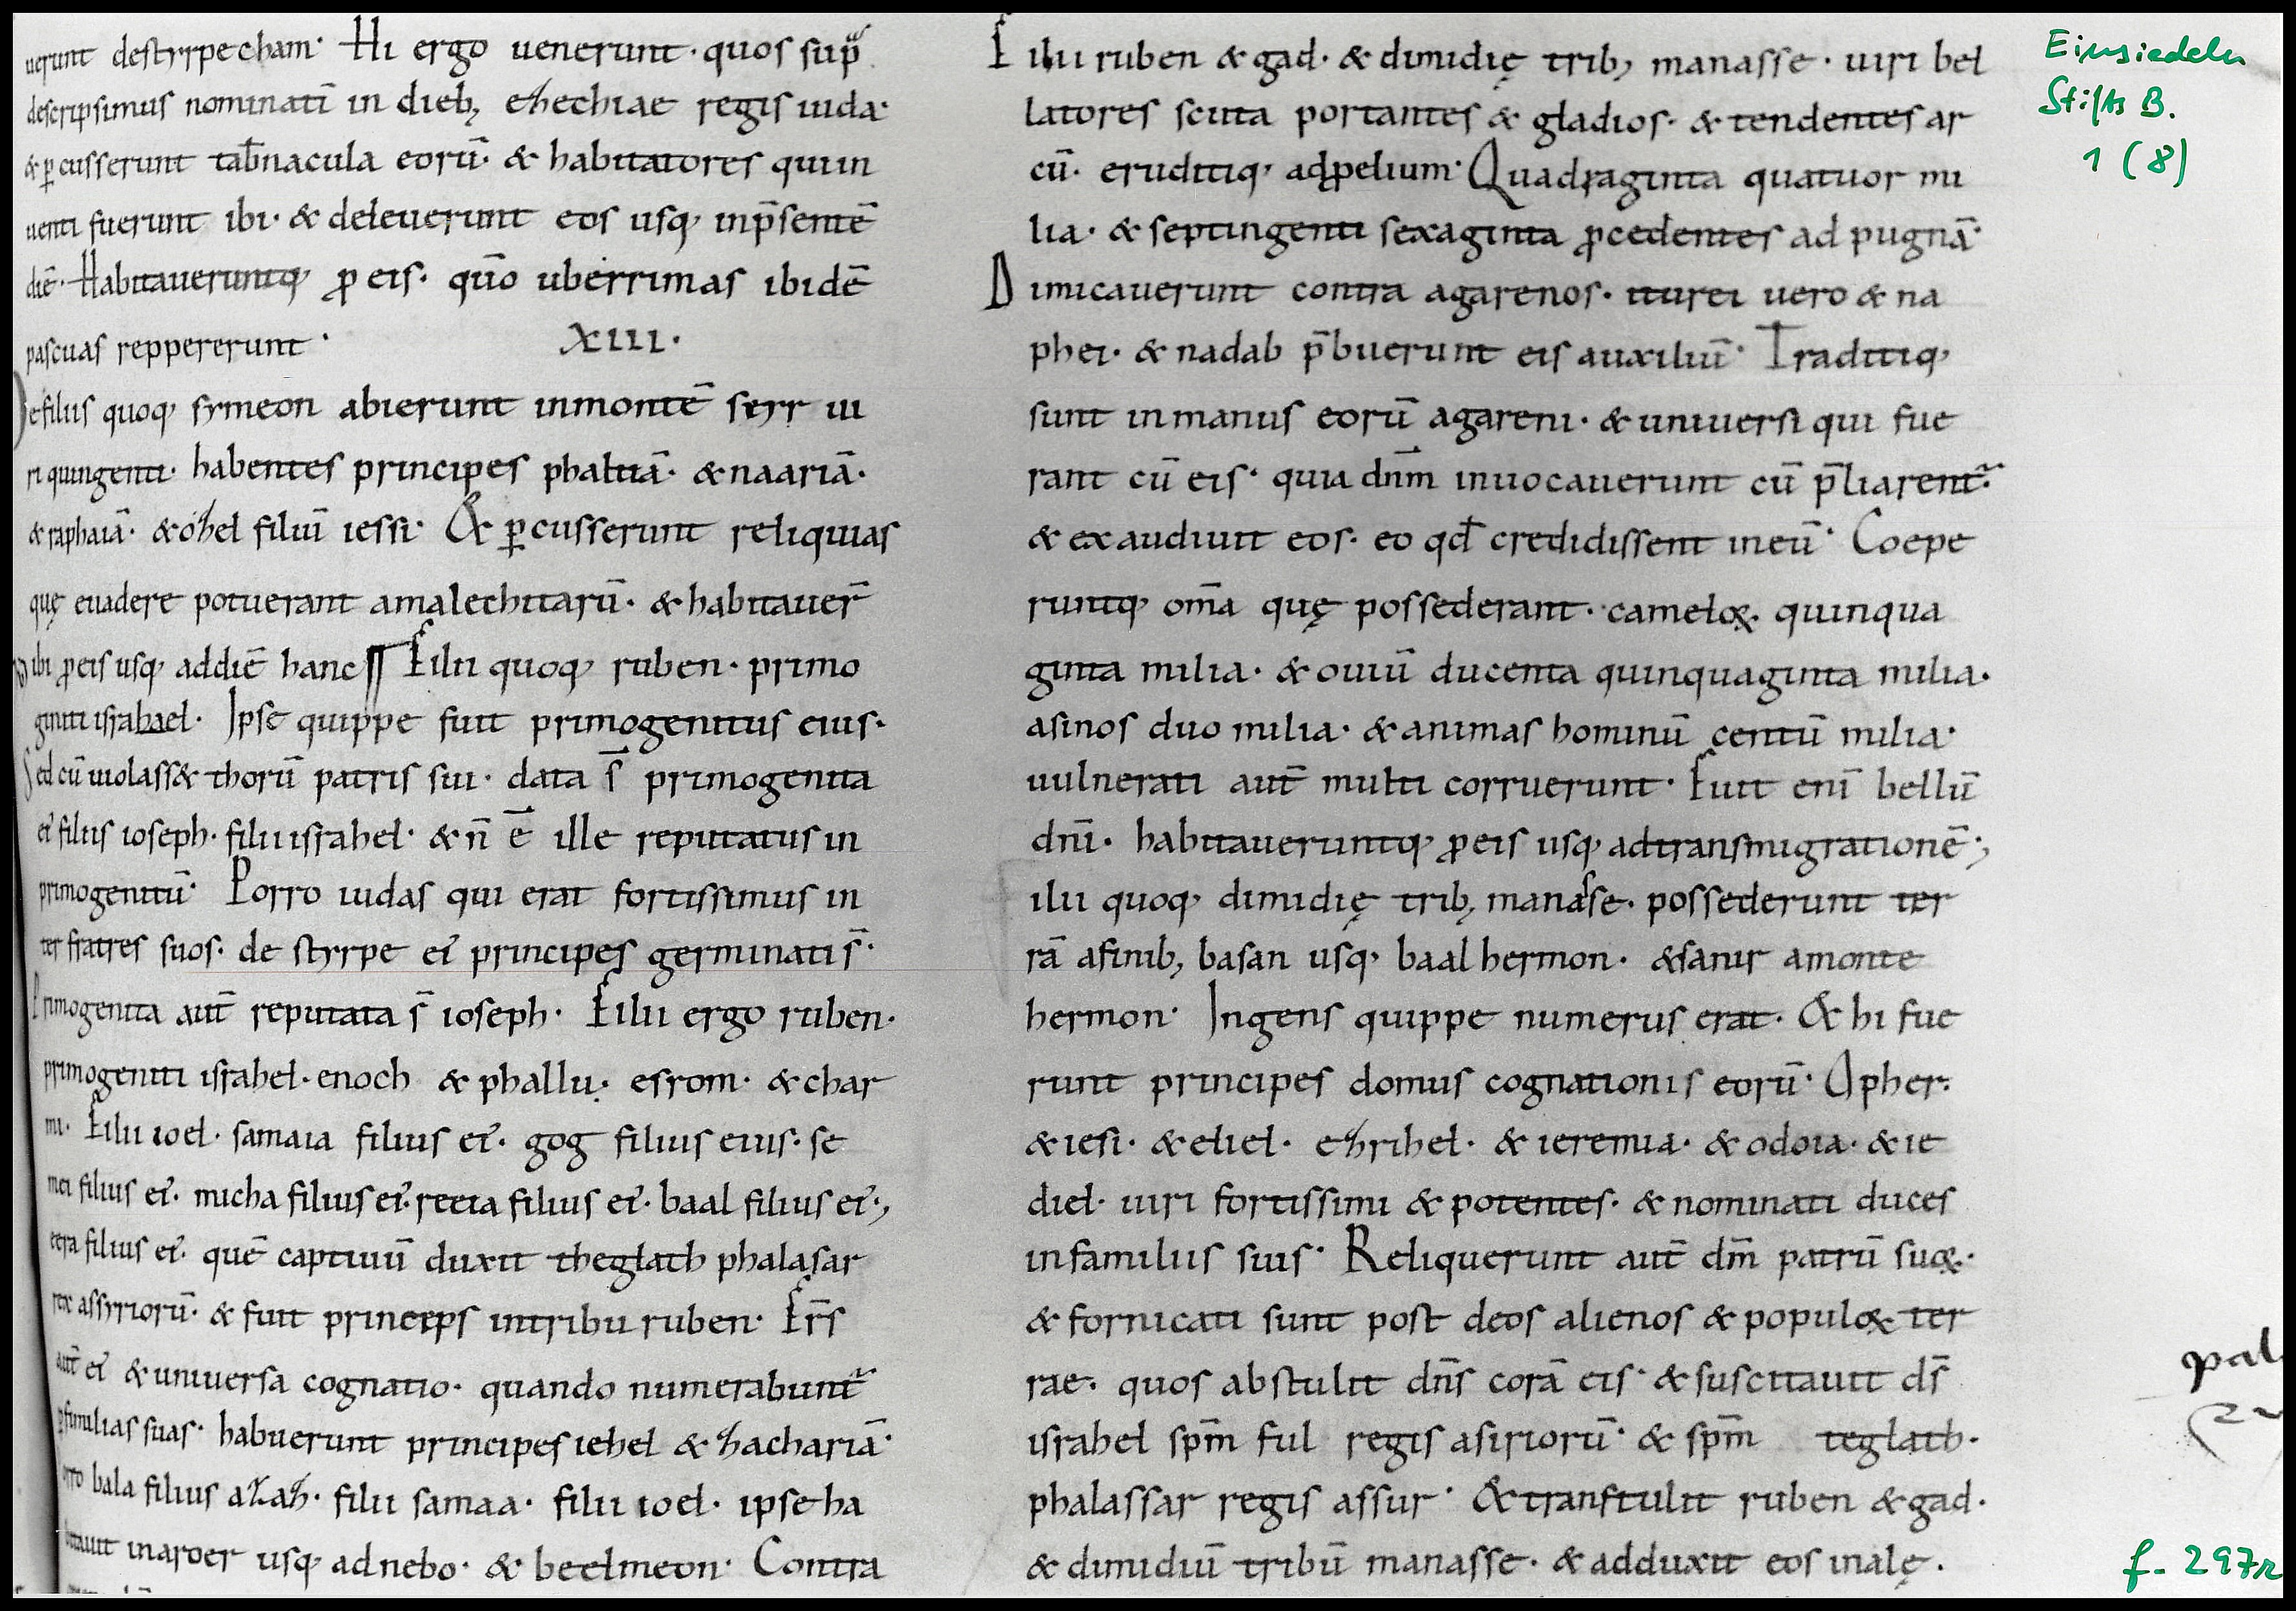 uerunt destyrpe cham· Hi ergo uenerunt· quos sup̄
descripsimus nominatī in dieb; ezechiae regis iuda·
& ꝑcusserunt tab̄nacula eorū· & habitatores qui in
uenti fuerunt ibi· & deleuerunt eos usq; inp̄sentē
diē· Habitaueruntq; ꝓ eis· quō uberrimas ibidē
pascuas reppererunt·
XIII·
De filiis quoq; symeon abierunt inmontē seyr ui
ri quingenti· habentes principes phaltiā· & naariā·
& raphaiā· & ozihel filiū iessi· & ꝑcusserunt reliquias
quę euadere potuerant amalechitarū· & habitauer̄
ibi ꝓ eis usq; addiē hanc Filii quoq; ruben· primo
geniti israhael· Ipse quippe fuit primogenitus eius·
Sed cū uiolass& thorū patris sui· data s̄ primogenita
ei' filiis ioseph· filii israhel· & n̄ ē ille reputatus in
primogenitū· Porro iudas qui erat fortissimus in
ter fratres suos· de styrpe ei' principes germinati s̄·
Primogenita aut̄ reputata s̄ ioseph· Filii ergo ruben·
primogeniti israhel· enoch & phallu· esrom· & char
mi· Filii ioel· samaia filius ei'· gog filius eius· se
mei filius ei'· micha filius ei'· reeia filius ei'· baal filius ei';
beera filius ei'· quē captiuū duxit theglath phalasar
rex assyriorū· & fuit princeps intribu ruben· Fr̄s
aut̄ ei' & uniuersa cognatio· quando numerabunt᷑
ꝑ familias suas· habuerunt principes iehel & zachariā·
Porro bala filius azaz· filii samaa· filii ioel· ipse ha
bitauit inaroer usq; adnebo· & beelmeon· Contra
Filii ruben & gad· & dimidię trib; manasse· uiri bel
latores scuta portantes & gladios· & tendentes ar
cū· eruditiq; adp̱elium· Quadraginta quatuor mi
lia· & septingenti sexaginta ꝓcedentes ad pugnā·
Dimicauerunt contra agarenos· iturei uero & na
phei· & nadab p̄buerunt eis auxiliū· Traditiq;
sunt inmanus eorū agareni· & uniuersi qui fue
rant cū eis· quia dnm̄ inuocauerunt cū p̄liarent᷑·
& exaudiuit eos· eo qd̄ credidissent ineū· Coepe
runtq; om̄a quę possederant· cameloꝝ· quinqua
ginta milia· & ouiū ducenta quinquaginta milia·
asinos duo milia· & animas hominū centū milia·
uulnerati aut̄ multi corruerunt· Fuit eni̅ bellū
dnī· habitaueruntq; ꝓ eis usq; adtransmigrationē;
ilii quoq; dimidię trib; manasse· possederunt ter
rā afinib; basan usq; baal hermon· & sanir amonte
hermon· Ingens quippe numerus erat· & hi fue
runt principes domus cognationis eorū· Apher·
& iesi· & eliel· ezrihel· & ieremia· & odoia· & ie
diel· uiri fortissimi & potentes· & nominati duces
infamiliis suis· Reliquerunt aut̄ dm̄ patrū suoꝝ·
& fornicati sunt post deos alienos & populoꝝ ter
rae· quos abstulit dn̄s corā eis· & suscitauit ds̄
israhel spm̄ ful regis asiriorū· & spm̄ teglath·
phalassar regis assur· & transtulit ruben & gad·
& dimidiū tribū manasse· & adduxit eos inalę·
Einsiedeln
Stifts B.
1 (8)
pal
f. 297r